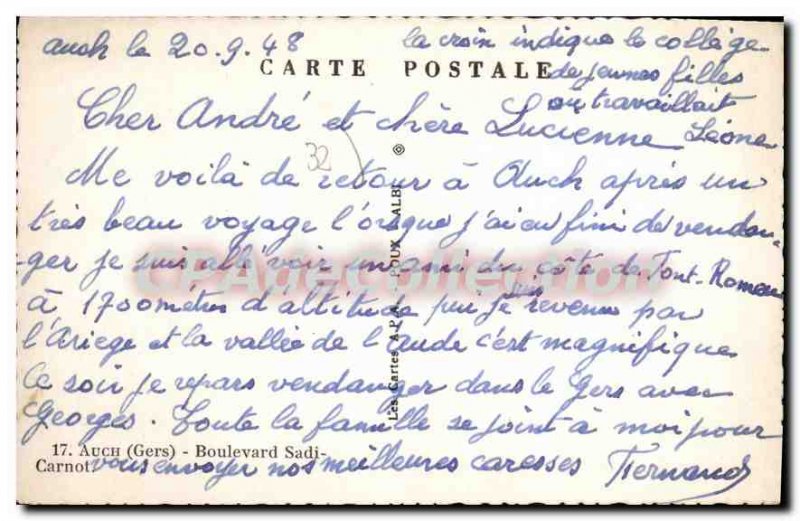 auch le 20.9.48
la croix indique le collège
CARTE POSTALE
de jeunes filles
ou travaillait
Léone
Cher André et chère Lucienne
32
Me voilà de retour à Auch après un
très beau voyage l'orsque j'ai eu fini de vendan-
ger je suis allé voir un ami du côté de Font-Romeu
à 1700 métres d'altitude puis je suis revenu par
l'Ariege et la vallée de l'Aude c'est magnifique
Ce soir je repars vendanger dans le Gers avec
Georges. Toute la famille se joint à moi pour
vous envoyer nos meilleures caresses Fernand
17. AUCH (Gers) - Boulevard Sadi-
Carnot.
Les Cartes A.P.A. POUX ALBI
CPA de Collection